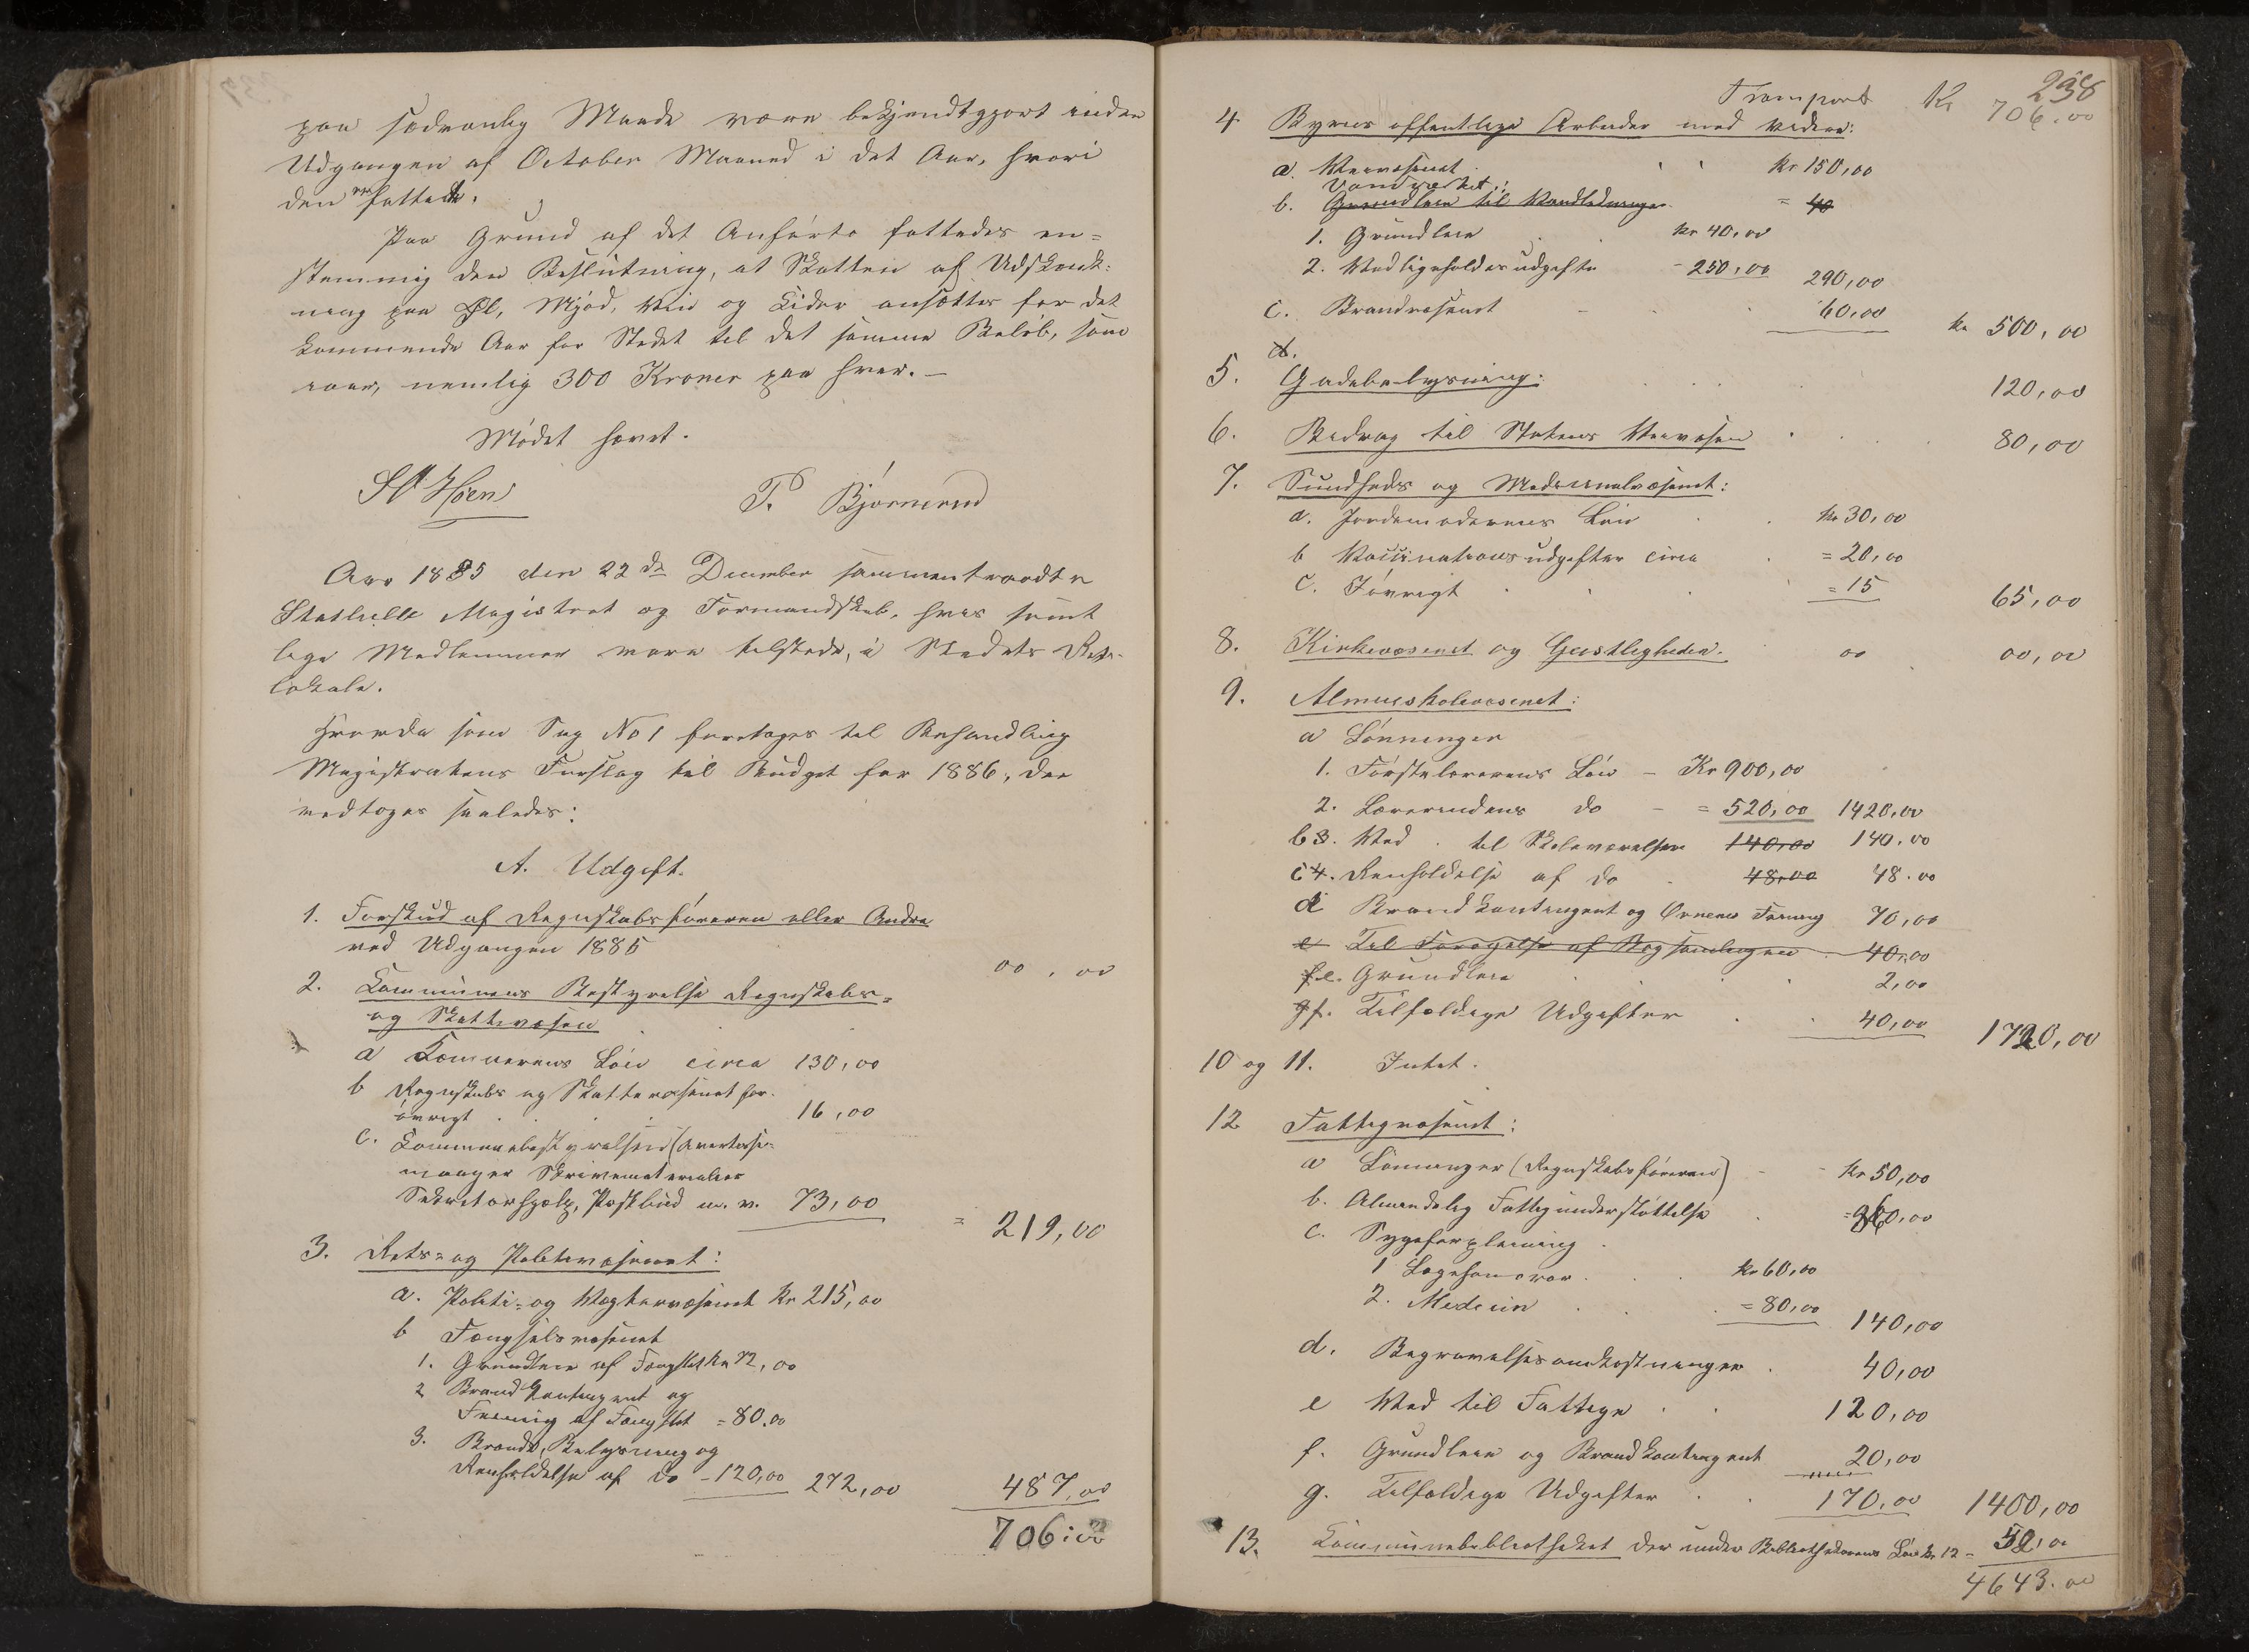 paa sædvanlig Maade være bekjendtgjort inden
Udgangen af October Maaned i det Aar, hvori
den er fattet.
Paa Grund af det Anførte fattedes en=
stemmig den Beslutning, at Skatten af Udskjænk=
ning paa Øl, Mjød, Vin og Cider ansættes for det
kommende Aar for Stedet til det samme Beløb, som
iaar, nemlig 300 Kroner paa hver. –
Mødet hævet.
T. Bjørnerud
Aar 1885 den 22de December sammentraadte
Stathelle Magistrat og Formandskab, hvis samt
lige Medlemmer vare tilstede, i Stedets Rets-
lokale.
Hvorda som Sag No 1 foretoges til Behandling
Magistratens Forslag til Budget for 1886, der
vedtoges saaledes:
A. Udgift.
1. Forskud af Regnskabsføreren eller Andre
ved Udgangen 1885
00,00
2. Communens Bestyrelse Regnskabs=
og Skattevæsen
a Kæmnerens Løn circa 130,00
b Regnskabs og Skattevæsenet for-
øvrigt . . 16,00
c. Kommunebestyrelsen (Avertisse-
menter Skrivematerialier
Sekretærhjælp, Postbud m. v. 73,00
= 219,00
3. Rets= og Politivæsenet:
a. Politi= og Vægtervæsenet Kr 215,00
b Fængselsvæsenet
1. Grundleie af Fængslet Kr 72,00
2 Brandkontingent og
Færnig af Fængslet = 80,00
3. Brænde, Belysning og
Renholdelse af do - 120,00 272,00 487,00
706:00
238
Transport Kr 706.00
4 Byens offentlige Arbeider med videre:
a. Veivæsenet . . Kr 150,00
Vandværket:
b. Grundleie til Vandledningen = 40
1. Grundleie . . Kr 40,00
2. Vedligeholdesudgifte - 250,00 290,00
c. Brandvæsenet - . . 60,00
Kr 500,00
d.
5. Gadebelysning: . . . 120,00
6. Bidrag til Statens Veivæsen . . . 80,00
7. Sundheds og Medicinalvæsenet:
a. Jordemoderens Løn . . Kr 30,00
b Vaccinationsudgifter circa . = 20,00
c. Iøvrigt . . . = 15
65,00
8. Kirkevæsenet og Geistligheden. 00 00,00
9. Almueskolevæsenet:
a Lønninger
1. Førstelærerens Løn - Kr 900,00
2. Lærerindens do - = 520,00 1420,00
b 3. Ved . til Skoleværelser 140,00 140.00
c 4. Renholdelse af do . 48,00 48.00
d Brandkontingent og Ovnenes 70,00
e Til Forøgelse af Bogsamlingen . 40,00
f e. Grundleie . . . 2,00
g f. Tilfældige Udgifter . . 40,00
1720,00
10 og 11. Intet.
12 Fattigvæsenet:
a Lønninger (Regnskabsføreren) - - Kr 50,00
b. Almindelig Fattigunderstøttelse . = 860,00
c. Sygeforpleining .
1 Lægehonorar . . . Kr 60,00
2. Medicin . . . = 80,00 140,00
d. Begravelsesomkostninger . 40,00
e Ved til Fattige . . 120,00
f. Grundleie og Brandkontingent 20,00
g. Tilfældige Udgifter . . 170,00 1400,00
13. Kommunebibliotheket der under Bibliothekarens Løn Kr 12 - 52,00
4643.00